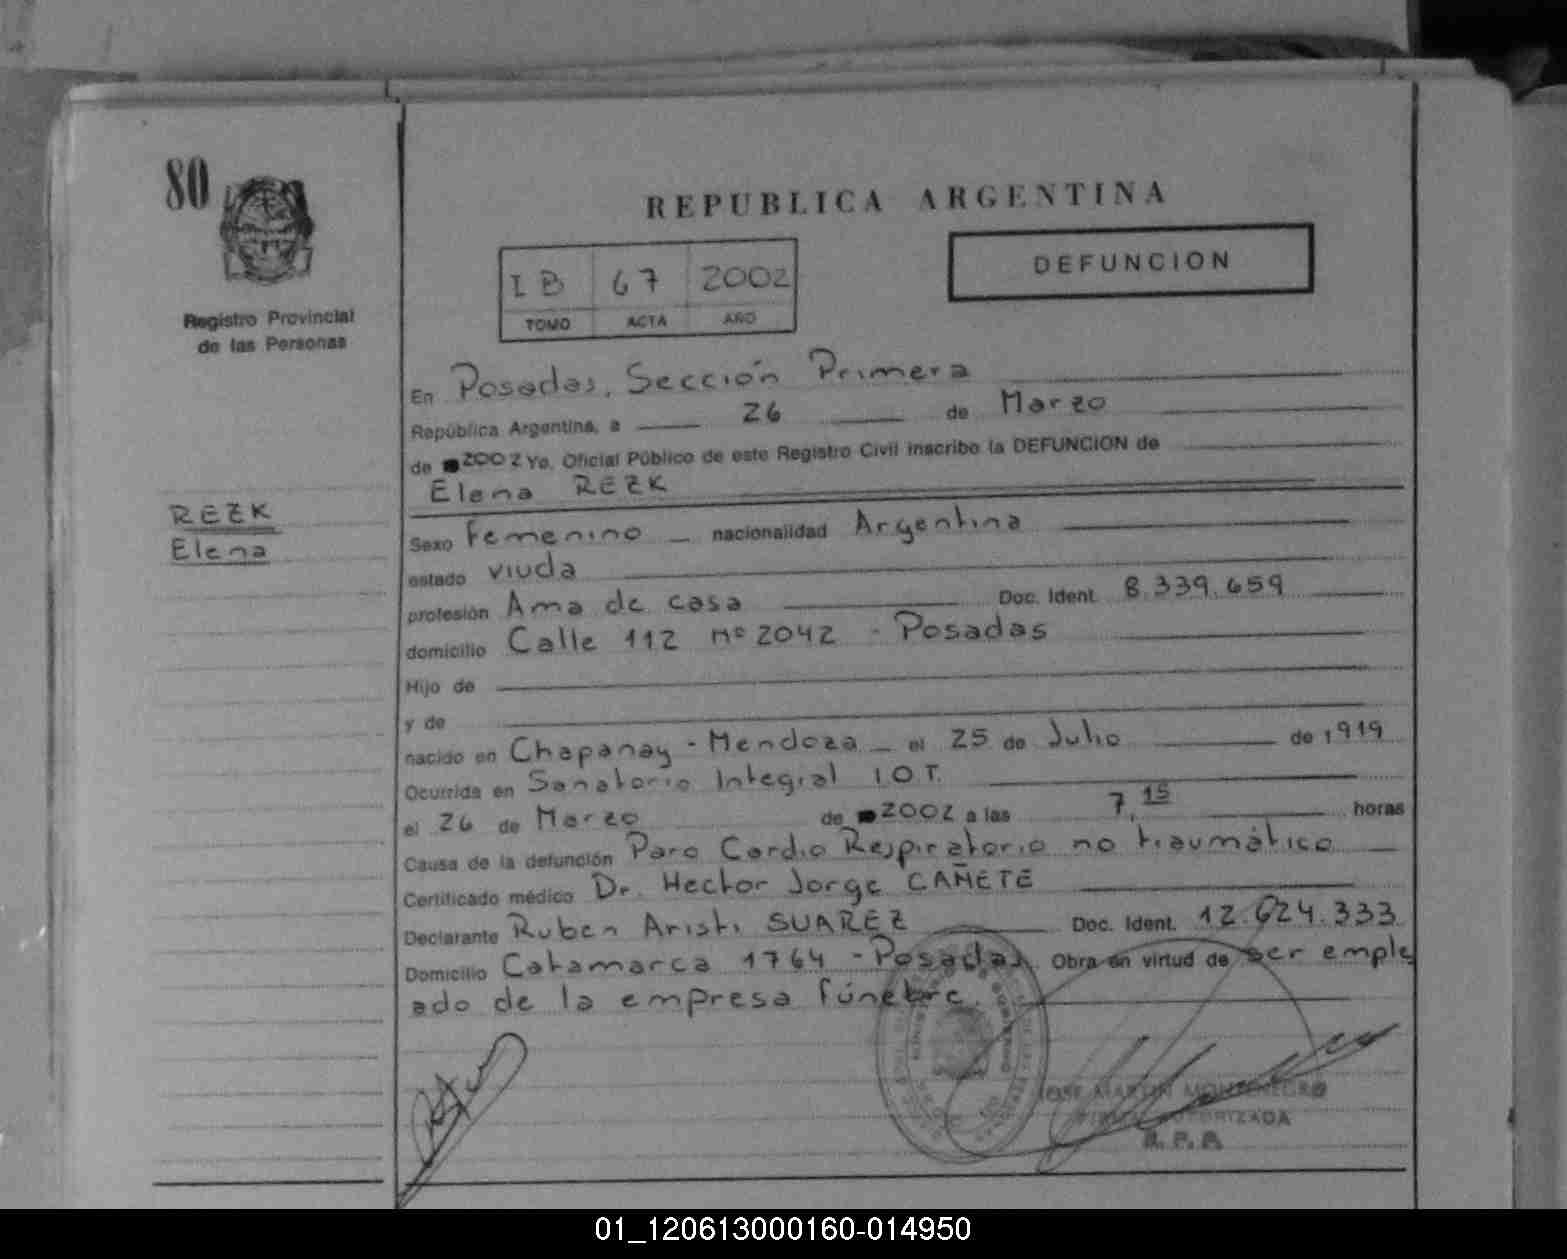 80
Registro Provincial
de las Personas
REZK
Elena
REPUBLICA ARGENTINA
DEFUNCION
I B 67 2002
TOMO ACTA AÑO
En Posadas, Sección Primera
República Argentina, a 26 de Marzo
de 2002 Yo, Oficial Público de este Registro Civil inscribo la DEFUNCION de
Elena REZK
Sexo Femenino nacionalidad Argentina
estado viuda
profesión Ama de casa Doc. Ident. 8.339.659
domicilio Calle 112 Nº 2042 - Posadas
Hijo de
y de
nacido en Chapanay - Mendoza el 25 de Julio de 1919
Ocurrida en Sanatorio Integral I.O.T.
el 26 de Marzo de 2002 a las 7,15 horas
Causa de la defunción Paro Cardio Respiratorio no traumático
Certificado médico Dr. Hector Jorge CAÑETE
Declarante Ruben Aristi SUAREZ Doc. Ident. 12.624.333
Domicilio Catamarca 1764 - Posadas Obra en virtud de ser emple
ado de la empresa fúnebre.
JOSE MARTIN MONTENEGRO
FIRMA AUTORIZADA
R. P. P.
01_120613000160-014950